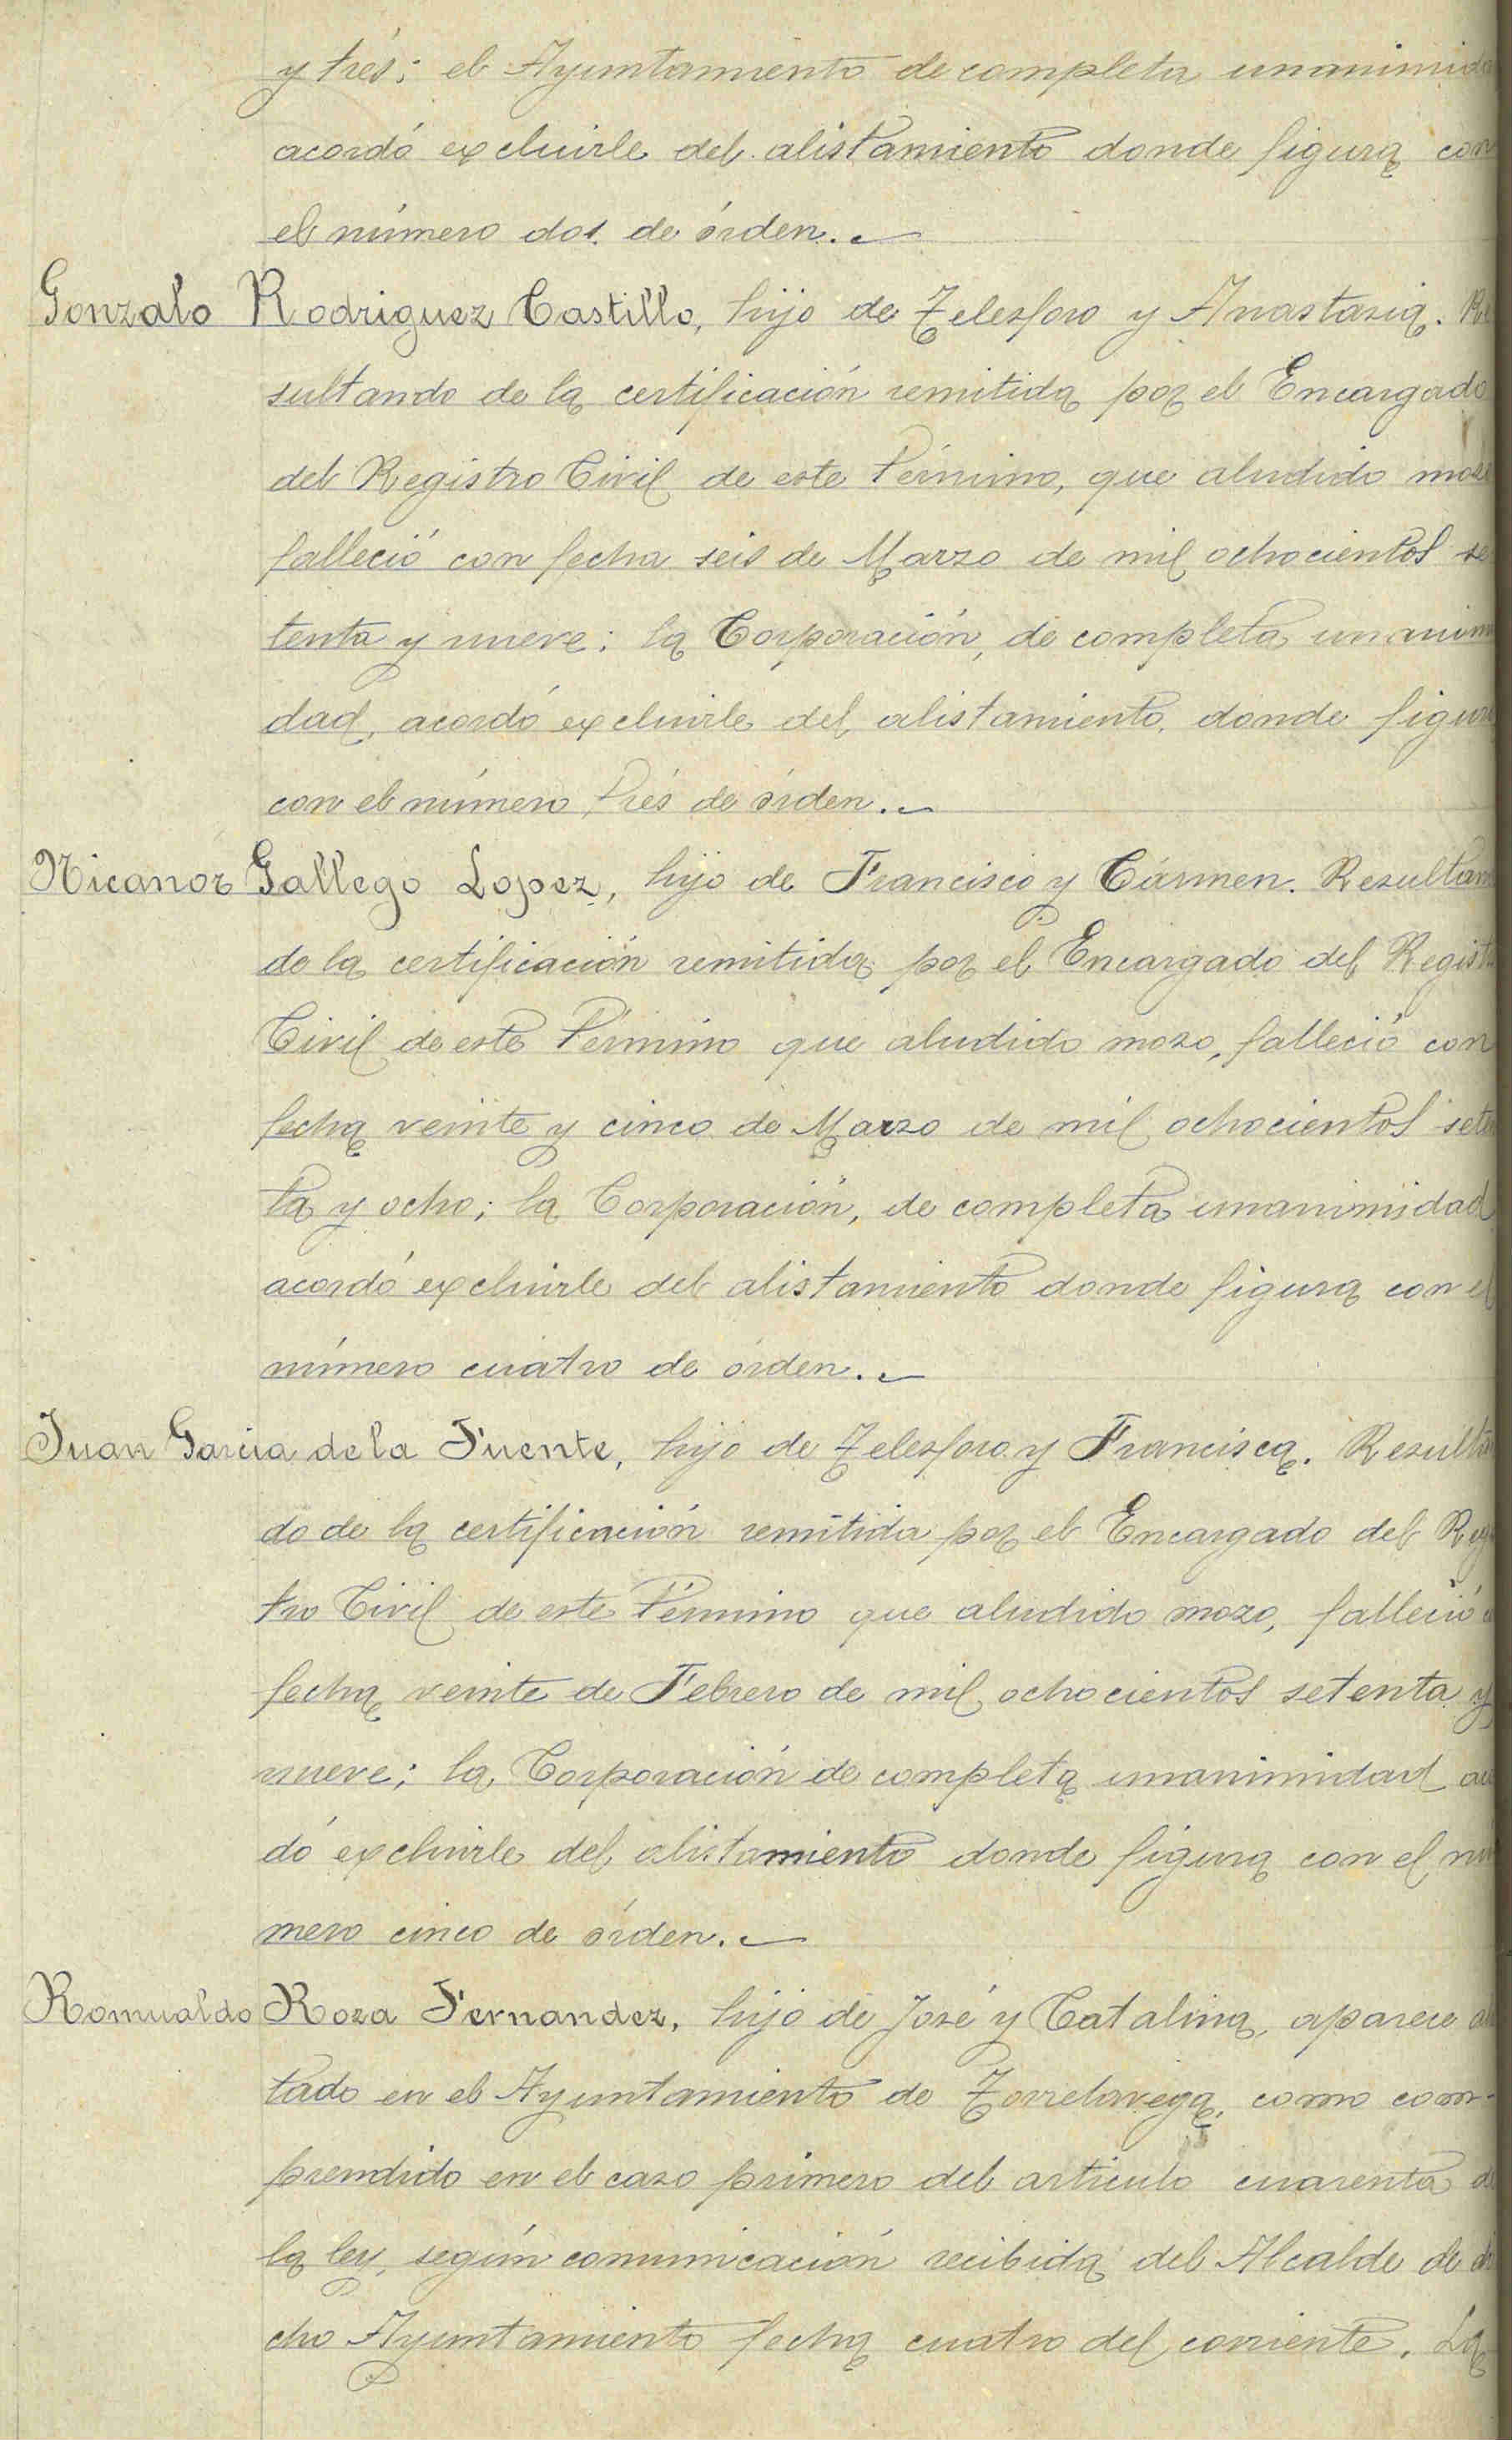 y trés; el Ayuntamiento de completa unanimida
acordó excluirle del alistamiento donde figura con
el número dos de órden.
Gonzalo Rodriguez Castillo, hijo de Telesforo y Anastasia. Re
sultando de la certificación remitida por el Encargado
del Registro Civil de este término, que aludido mozo
falleció con fecha seis de Marzo de mil ochocientos se
tenta y nueve; la Corporación, de completa unanimi
dad, acordó excluirle del alistamiento, donde figura
con el número trés de órden.
Nicanor Gallego Lopez, hijo de Francisco y Cármen. Resultan
do la certificación remitida por el Encargado del Regist
Civil de este término que aludido mozo, falleció con
fecha veinte y cinco de Marzo de mil ochocientos seten
ta y ocho; la Corporación, de completa unanimidad
acordó excluirle del alistamiento donde figura con el
número cuatro de órden.
Juan Garcia de la Fuente, hijo de Telesforo y Francisca. Resultan
do de la certificación remitida por el Encargado del Regis
tro Civil de este término que aludido mozo, falleció
fecha veinte de Febrero de mil ochocientos setenta y
nueve; la Corporación de completa unanimidad acor
dó excluirle del alistamiento donde figura con el nú
mero cinco de órden.
Romualdo Roza Fernandez, hijo de José y Catalina, aparece alis
tado en el Ayuntamiento de Torrelavega, como com-
prendido en el caso primero del articulo cuarenta de
la ley, según comunicación recibida del Alcalde de di
cho Ayuntamiento fecha cuatro del corriente. La